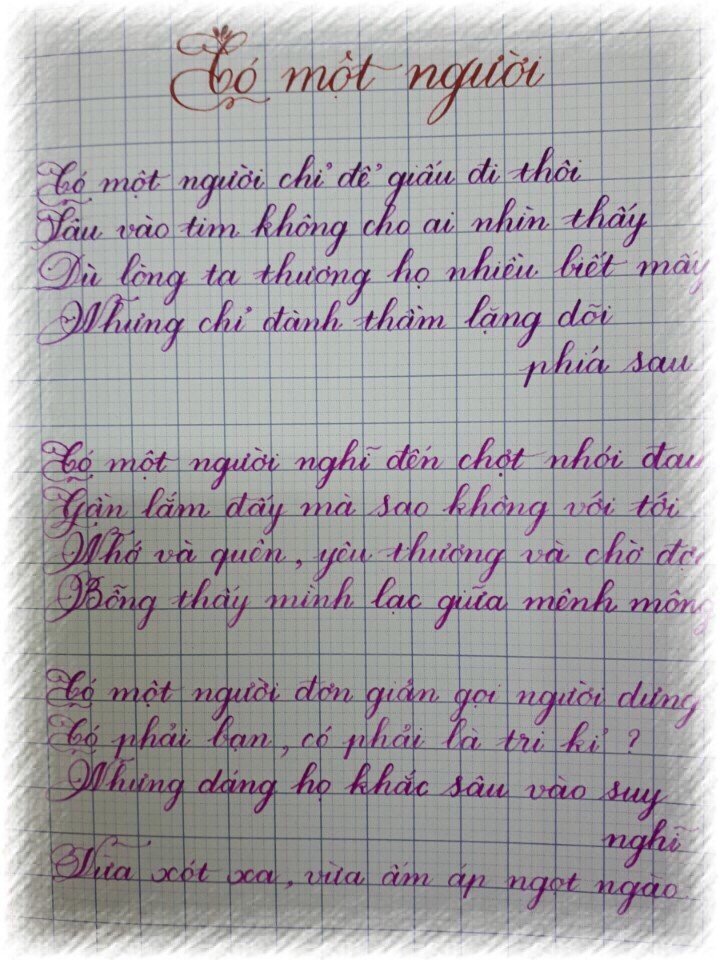 Có một người
Có một người chỉ để giấu đi thôi
Sâu vào tim không cho ai nhìn thấy
Dù lòng ta thương họ nhiều biết mấy
Nhưng chỉ đành thầm lặng dõi
phía sau
Có một người nghĩ đến chợt nhói đau
Gần lắm đấy mà sao không với tới
Nhớ và quên, yêu thương và chờ đợi
Bỗng thấy mình lạc giữa mênh mông
Có một người đơn giản gọi người dưng
Có phải bạn, có phải là tri kỉ ?
Nhưng dáng họ khắc sâu vào suy
nghĩ
Vừa xót xa, vừa ấm áp ngọt ngào.